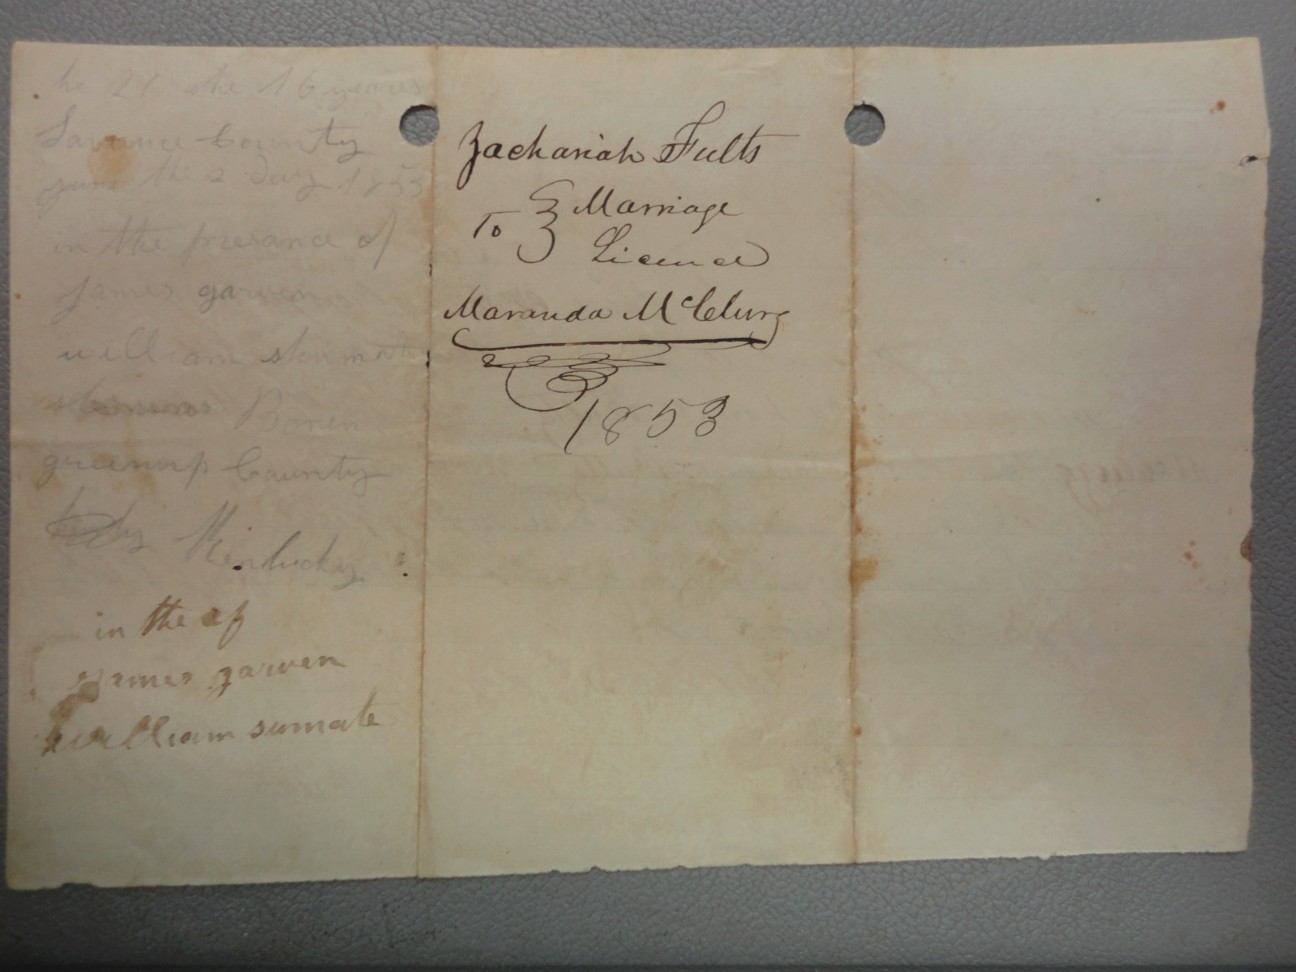 he 21 she 16 years
Larance County
june the 2 day 1853
in the presance of
james garven
william shumate
Boren
greenup County
Kentucky
in the of
james garven
william sumate
Zachariah Fults
To Marriage
Licence
Maranda McClurg
1853